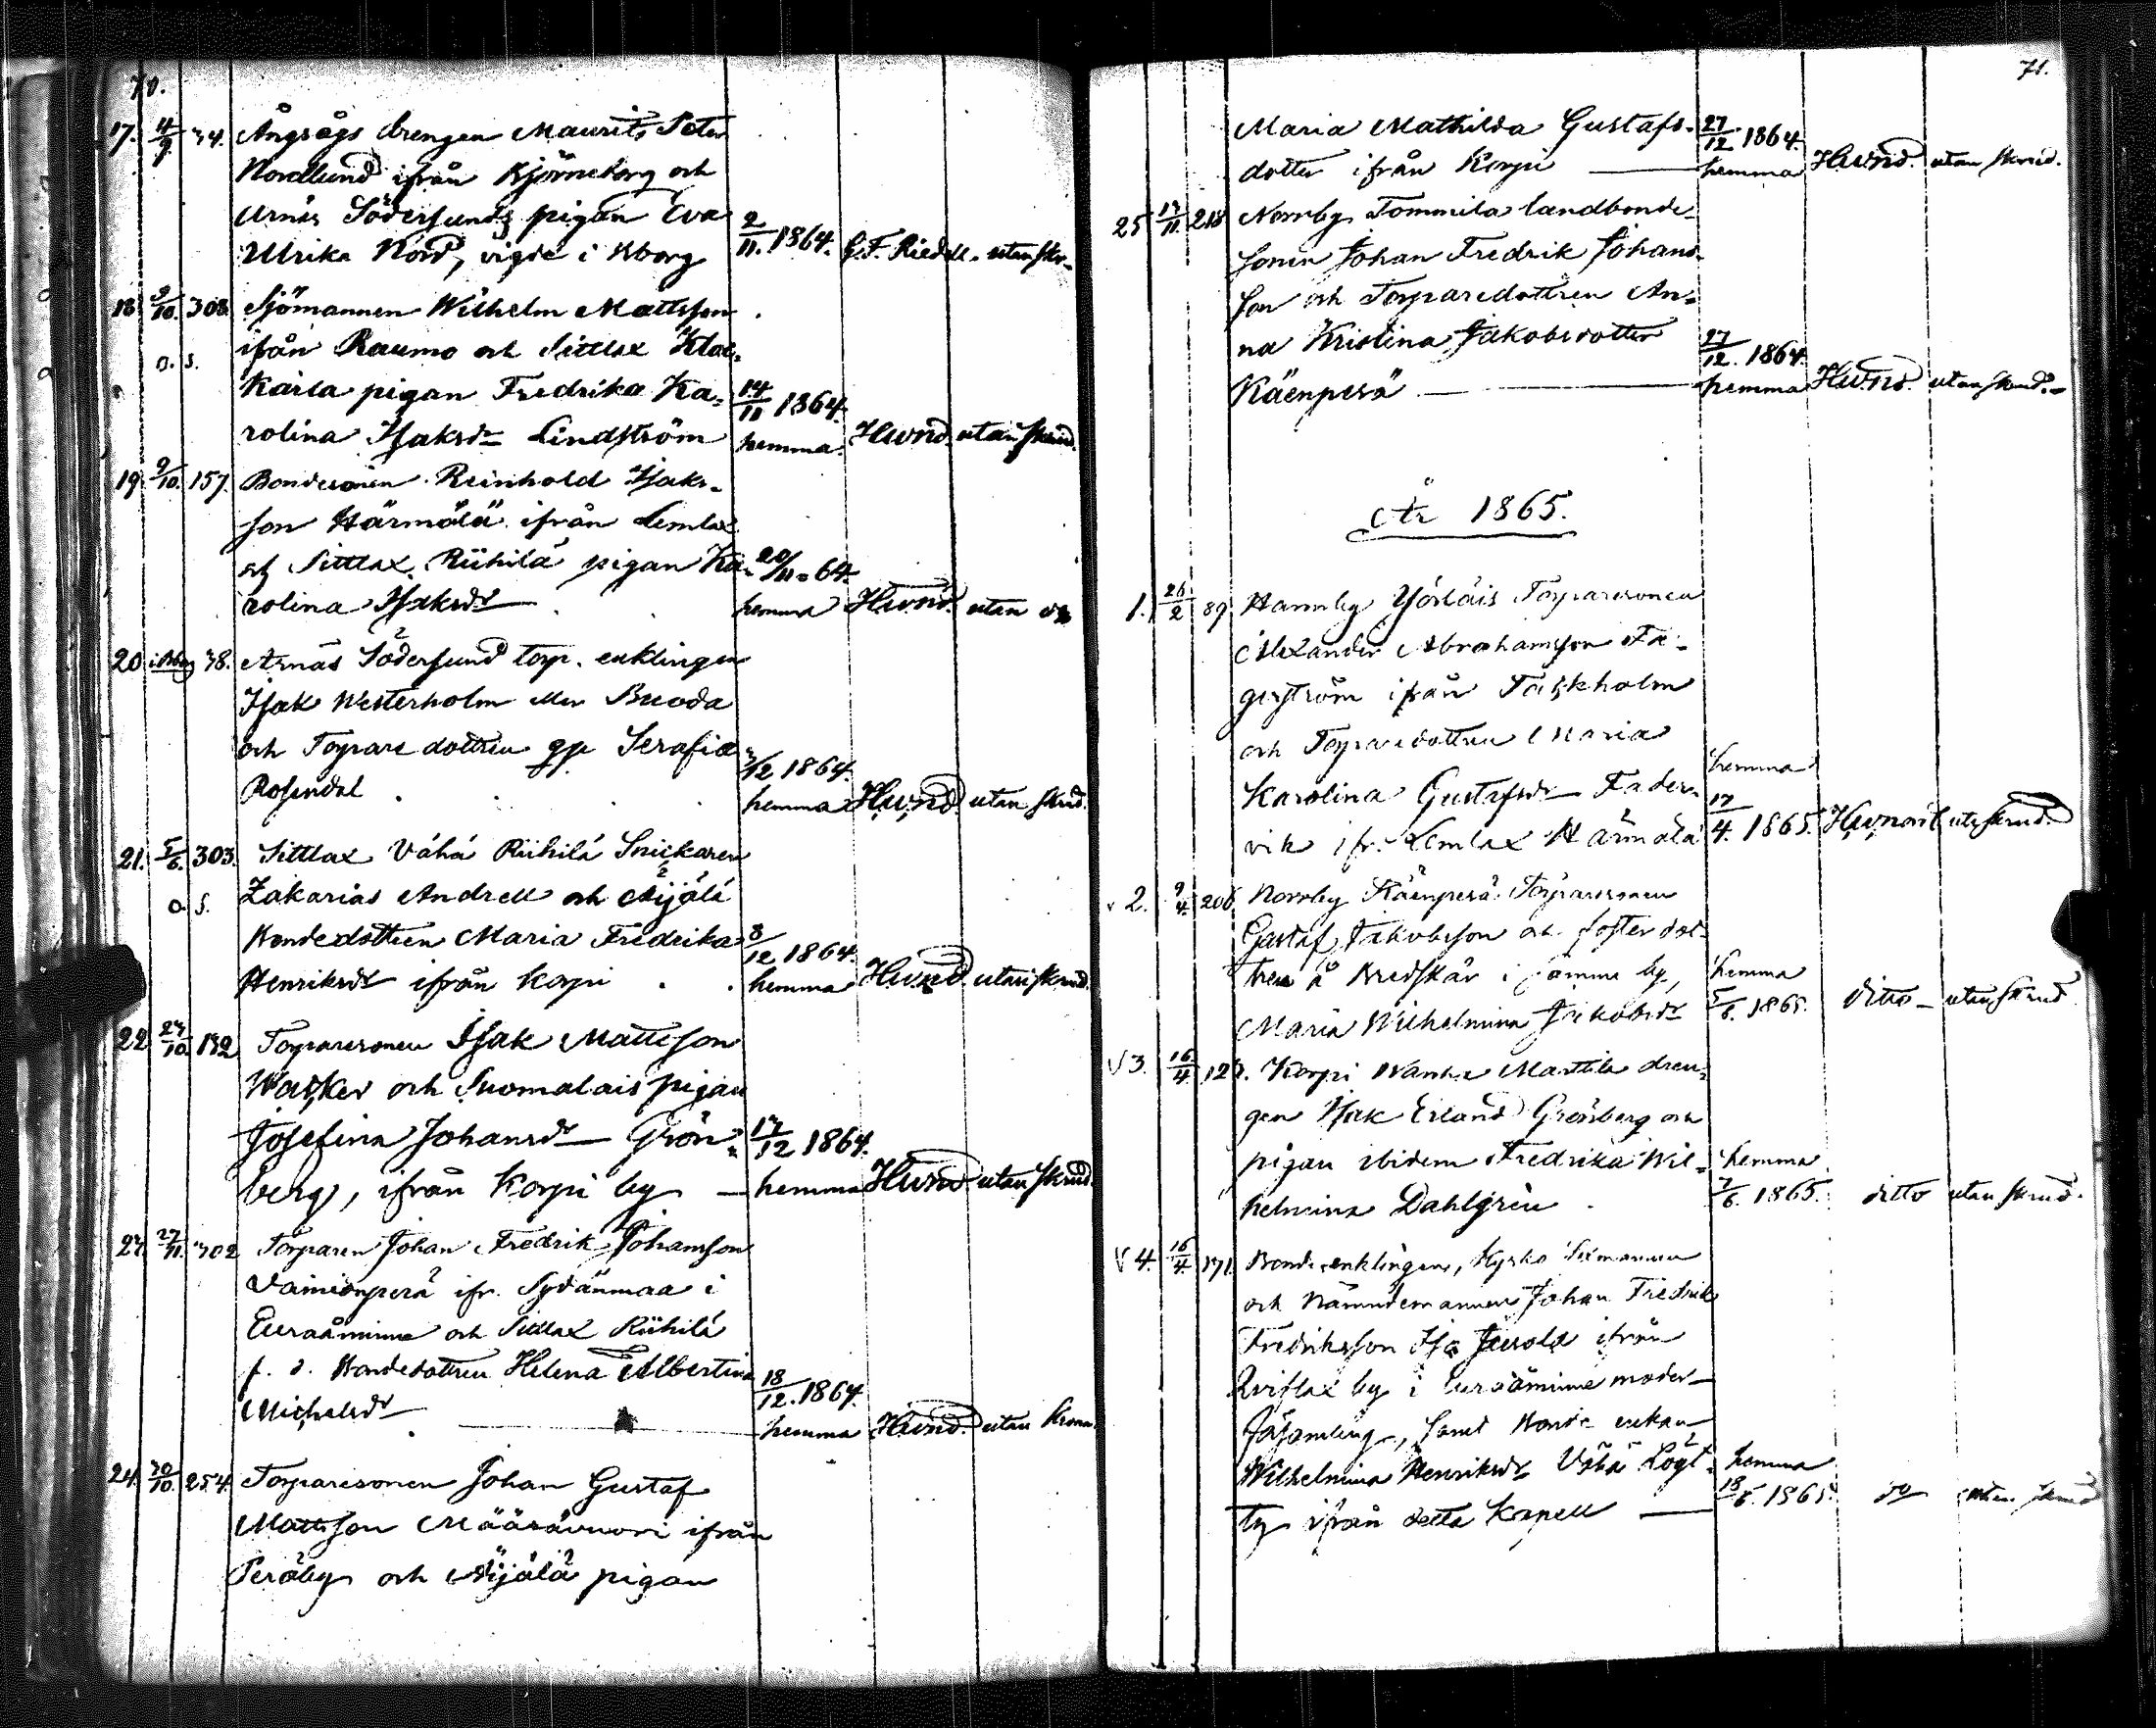 70.
17. 4/9. 34. Ångsågs drengen Maurits Peter
Nordlund ifrån Björneborg och
Arnäs Södersunds pigan Eva
Ulrika Nord, vigde i Bborg 2/11. 1864. G.F. Riedell. utan skr.
18 9/10. 308. Sjömannen Wilhelm Mattsson
o. s. ifrån Raumo och Sittlax Kla-
Karla pigan Fredrika Ka- 14/11 1864.
rolina Isaksdr Lindström hemma. Hwnd. utan skrud.
19. 9/10. 157. Bondesonen Reinhold Isaks-
son Härmälä ifrån Lemlax
och Sittlax Riihilä pigan Ka- 20/11 64.
rolina Isaksdr hemma Hwnd. utan
20 38. Arnäs Södersund torp. enklingen
Isak Westerholm eller Buoda
och Torpare dottren Serafia
Rosendal 1/12 1864. hemma Hwnd. utan skrud.
21. 5/6. 303. Sittlax Vähä Riihilä Snickaren
o. s. Zakarias Andrell och Äijälä
Bondedottren Maria Fredrika 3/12 1864.
Henriksdr ifrån Korpi . . hemma Hwnd. utan skrud.
22 23/10. 132 Torparesonen Isak Mattsson
Wasker och Suomalais pigan
Josefina Johansdr Grön- 17/12 1864.
berg, ifrån Korpi by hemma Hwnd utan skrud.
23. 27/11. 302 Torparen Johan Fredrik Johansson
Vainionperä ifr. Sydänmaa i
Euraåminne och Sittlax Riihilä
f. d. Bondedottren Helena Albertina 18/12. 1864.
Michelsdr hemma Hwnd. utan krona.
24. 30/10. 254. Torparesonen Johan Gustaf
Mattsson Määrävuori ifrån
Peräby och Äijälä pigan
71.
Maria Mathilda Gustafs- 27/12 1864.
dotter ifrån Korpi hemma Hwnd. utan skrud.
25 13/11. 218 Norrby Tommila landbonde-
sonen Johan Fredrik Johans-
son och Torparedottren An-
na Kristina Jakobsdotter 27/12. 1864.
Käenperä hemma Hwnd. utan skrud.
År 1865.
1. 26/2 89 Hamnby Yöstäis Torparesonen
Alexander Abrahamsson Fa-
gerström ifrån Täskholm
och Torparedottren Maria hemma
Karolina Gustafsdr Fader- 17/4. 1865. Hwnd utan skrud.
vik ifr. Lemlax Härmälä
v 2. 9/4. 206 Norrby Käenperä Torparesonen
Gustaf Jakobsson och fosterdot-
tren å Bredskär i samma by, hemma
Maria Wilhelmina Jakobsdr 5/6. 1865. ditto utan skrud
V 3. 16/4 123. Korpi Wanha Marttila dren-
gen Isak Erland Grönberg och
pigan ibidem Fredrika Wil- hemma
helmina Dahlgrén 7/6. 1865. ditto utan skrud.
V 4. 16/4. 171. Bonde enklingen, Kyrko Sexmannen
och Nämndemannen Johan Fredrik
Fredriksson Iso Juusola ifrån
Qviflax by i Euraåminne moder-
församling, samt Bonde enkan
Wilhelmina Henriksdr Vähä Löyt- hemma
ty ifrån detta Kapell 18/6. 1865. do utan skrud